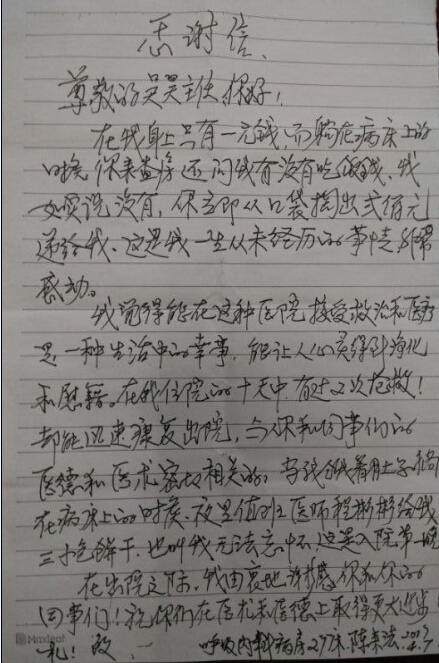 感谢信
尊敬的吴昊主任你好!
在我身上只有一元钱,而躺在病床上的
时候你来查房还问我有没有吃饭钱,我
如实说没有,你立即从口袋掏出贰佰元
递给我,这是我一生从未经历的事情,非常
感动。
我觉得能在这种医院接受救治和医疗
是一种生活中的幸事,能让人心灵得到净化
和慰籍。在我住院的十天中有过2次抢救!
却能迅速康复出院,与你和同事们的
医德和医术密切相关的,当我饿着肚子躺
在病床上的时候,夜里值班医师程彬彬给我
三小包饼干,也叫我无法忘怀,这是入院第一晚
在出院之际,我由衷地许感你和你的
同事们!祝你们在医术和医德上取得更大进步!
礼! 致 呼吸内科病房29床 陈来法